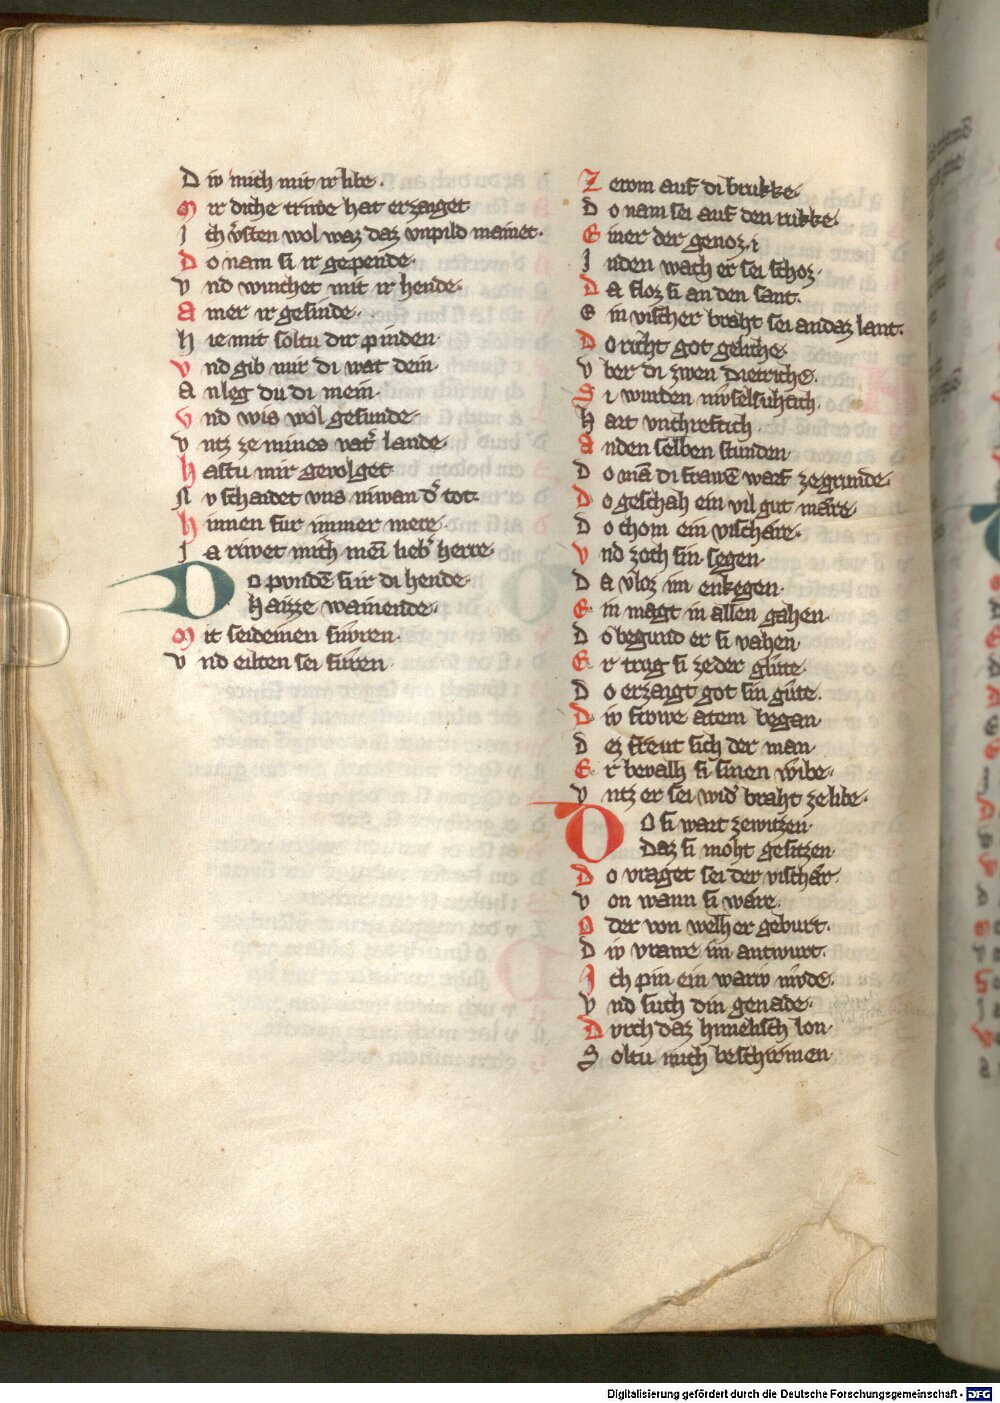 D iv mich mit ir libe ·
M ir diche triwe hat erzaiget
I ch v̓sten wol waz daz vnpild mainet ·
D o nam si ir gepende ·
v nd winchet mit ir hende ·
A iner ir gesinde ·
h ie mit soltu dir pinden
v nd gib mir di wat dein
A nleg du di mein ·
v nd wis wol gesunde ·
v ntz ze mines vat̓ lande ·
h astu mir gevolget
N v schaidet vns niwan d̓ tot ·
h innen fur immer mere ·
I a riwet mich mein lieb̓ herre ·
D o pvnden̄ si ir di hende ·
haizze wainende ·
M it seideinen snvren ·
v nd eilten sei furen
Z erom auf di brukke ·
D o nam sei auf den rukke ·
E iner der genoz · i
I nden wach er sei schoz ·
D a floz si an den sant ·
E in vischer braht sei an daz lant ·
D o richt got geliche
v ber di zwen Dietriche ·
S i wurden mvselsuhtich ·
h art vnchreftich
A nden selben stunden
D o mā di frawē warf ze grunde ·
D o geschah ein vil gut märe ·
D o chom ein vischäre ·
v nd zoch sin segen ·
D a vloz im enkegen ·
E in magt in allen gahen
D o begund er si vahen
E r trug si ze der glute ·
D o erzaigt got sin gute ·
D iv frowe atem began
D ez freut sich der man
E r bevalh si sinen wibe ·
v ntz er sei wid̓ braht ze libe ·
D o si wart ze witzen ·
Daz si moht gesitzen
D o vraget sei der vischär ·
v on wann si wäre ·
O der von welher geburt ·
D iv vrawe im antwurt ·
I ch pin ein warin mvde ·
v nd such din genade ·
D vrch daz himelisch lon
S oltu mich beschirmen
Digitalisierung gefördert durch die Deutsche Forschungsgemeinschaft - DFG